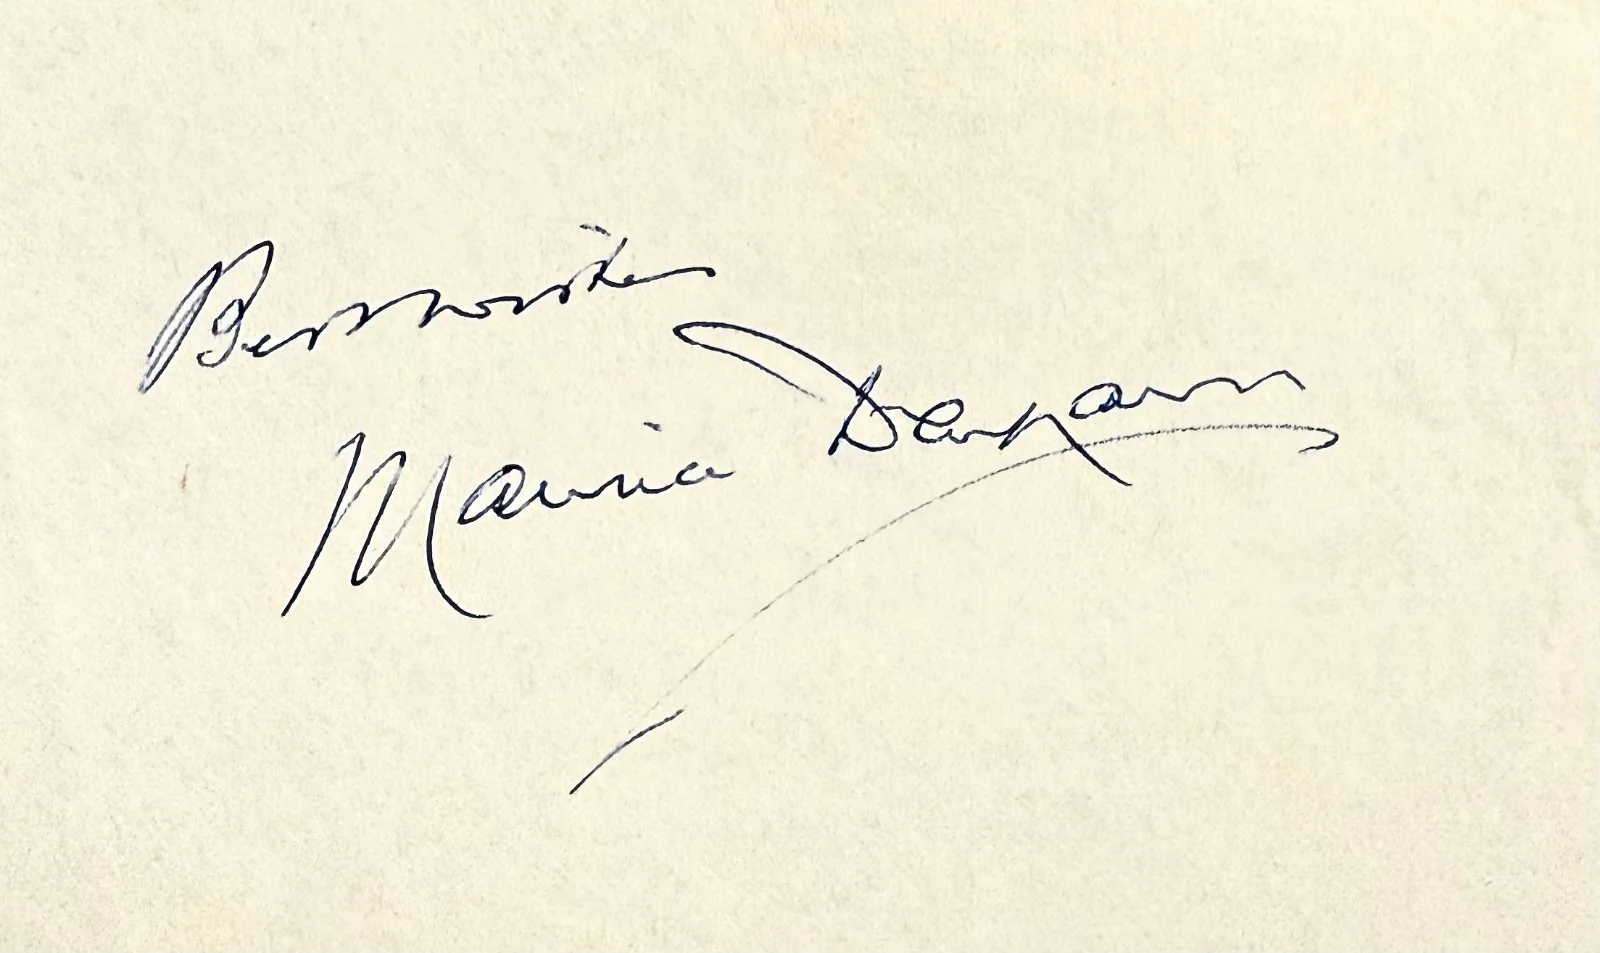 Best wishes
Maurice Denham